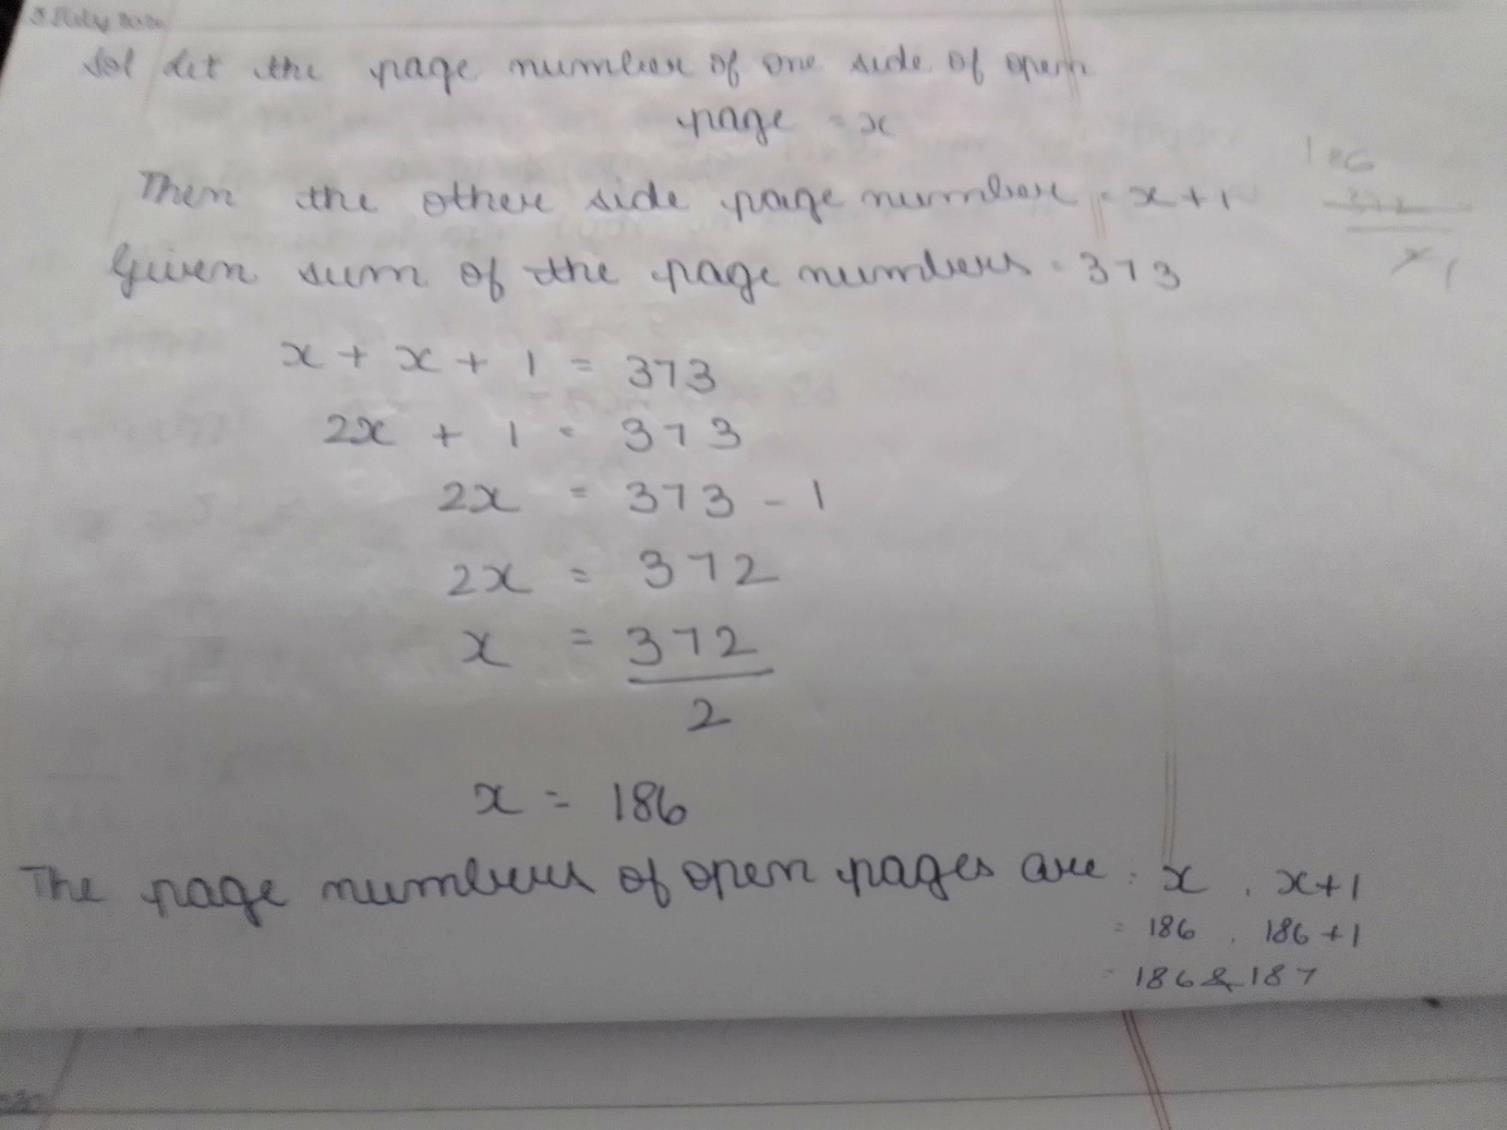 Sol Let the page number of one side of open
page = x
Then the other side page number = x+1
Given sum of the page numbers = 373
x + x + 1 = 373
2x + 1 = 373
2x = 373 - 1
2x = 372
x = 372
2
x = 186
The page numbers of open pages are = x, x+1
= 186, 186+1
= 186 & 187
186
372